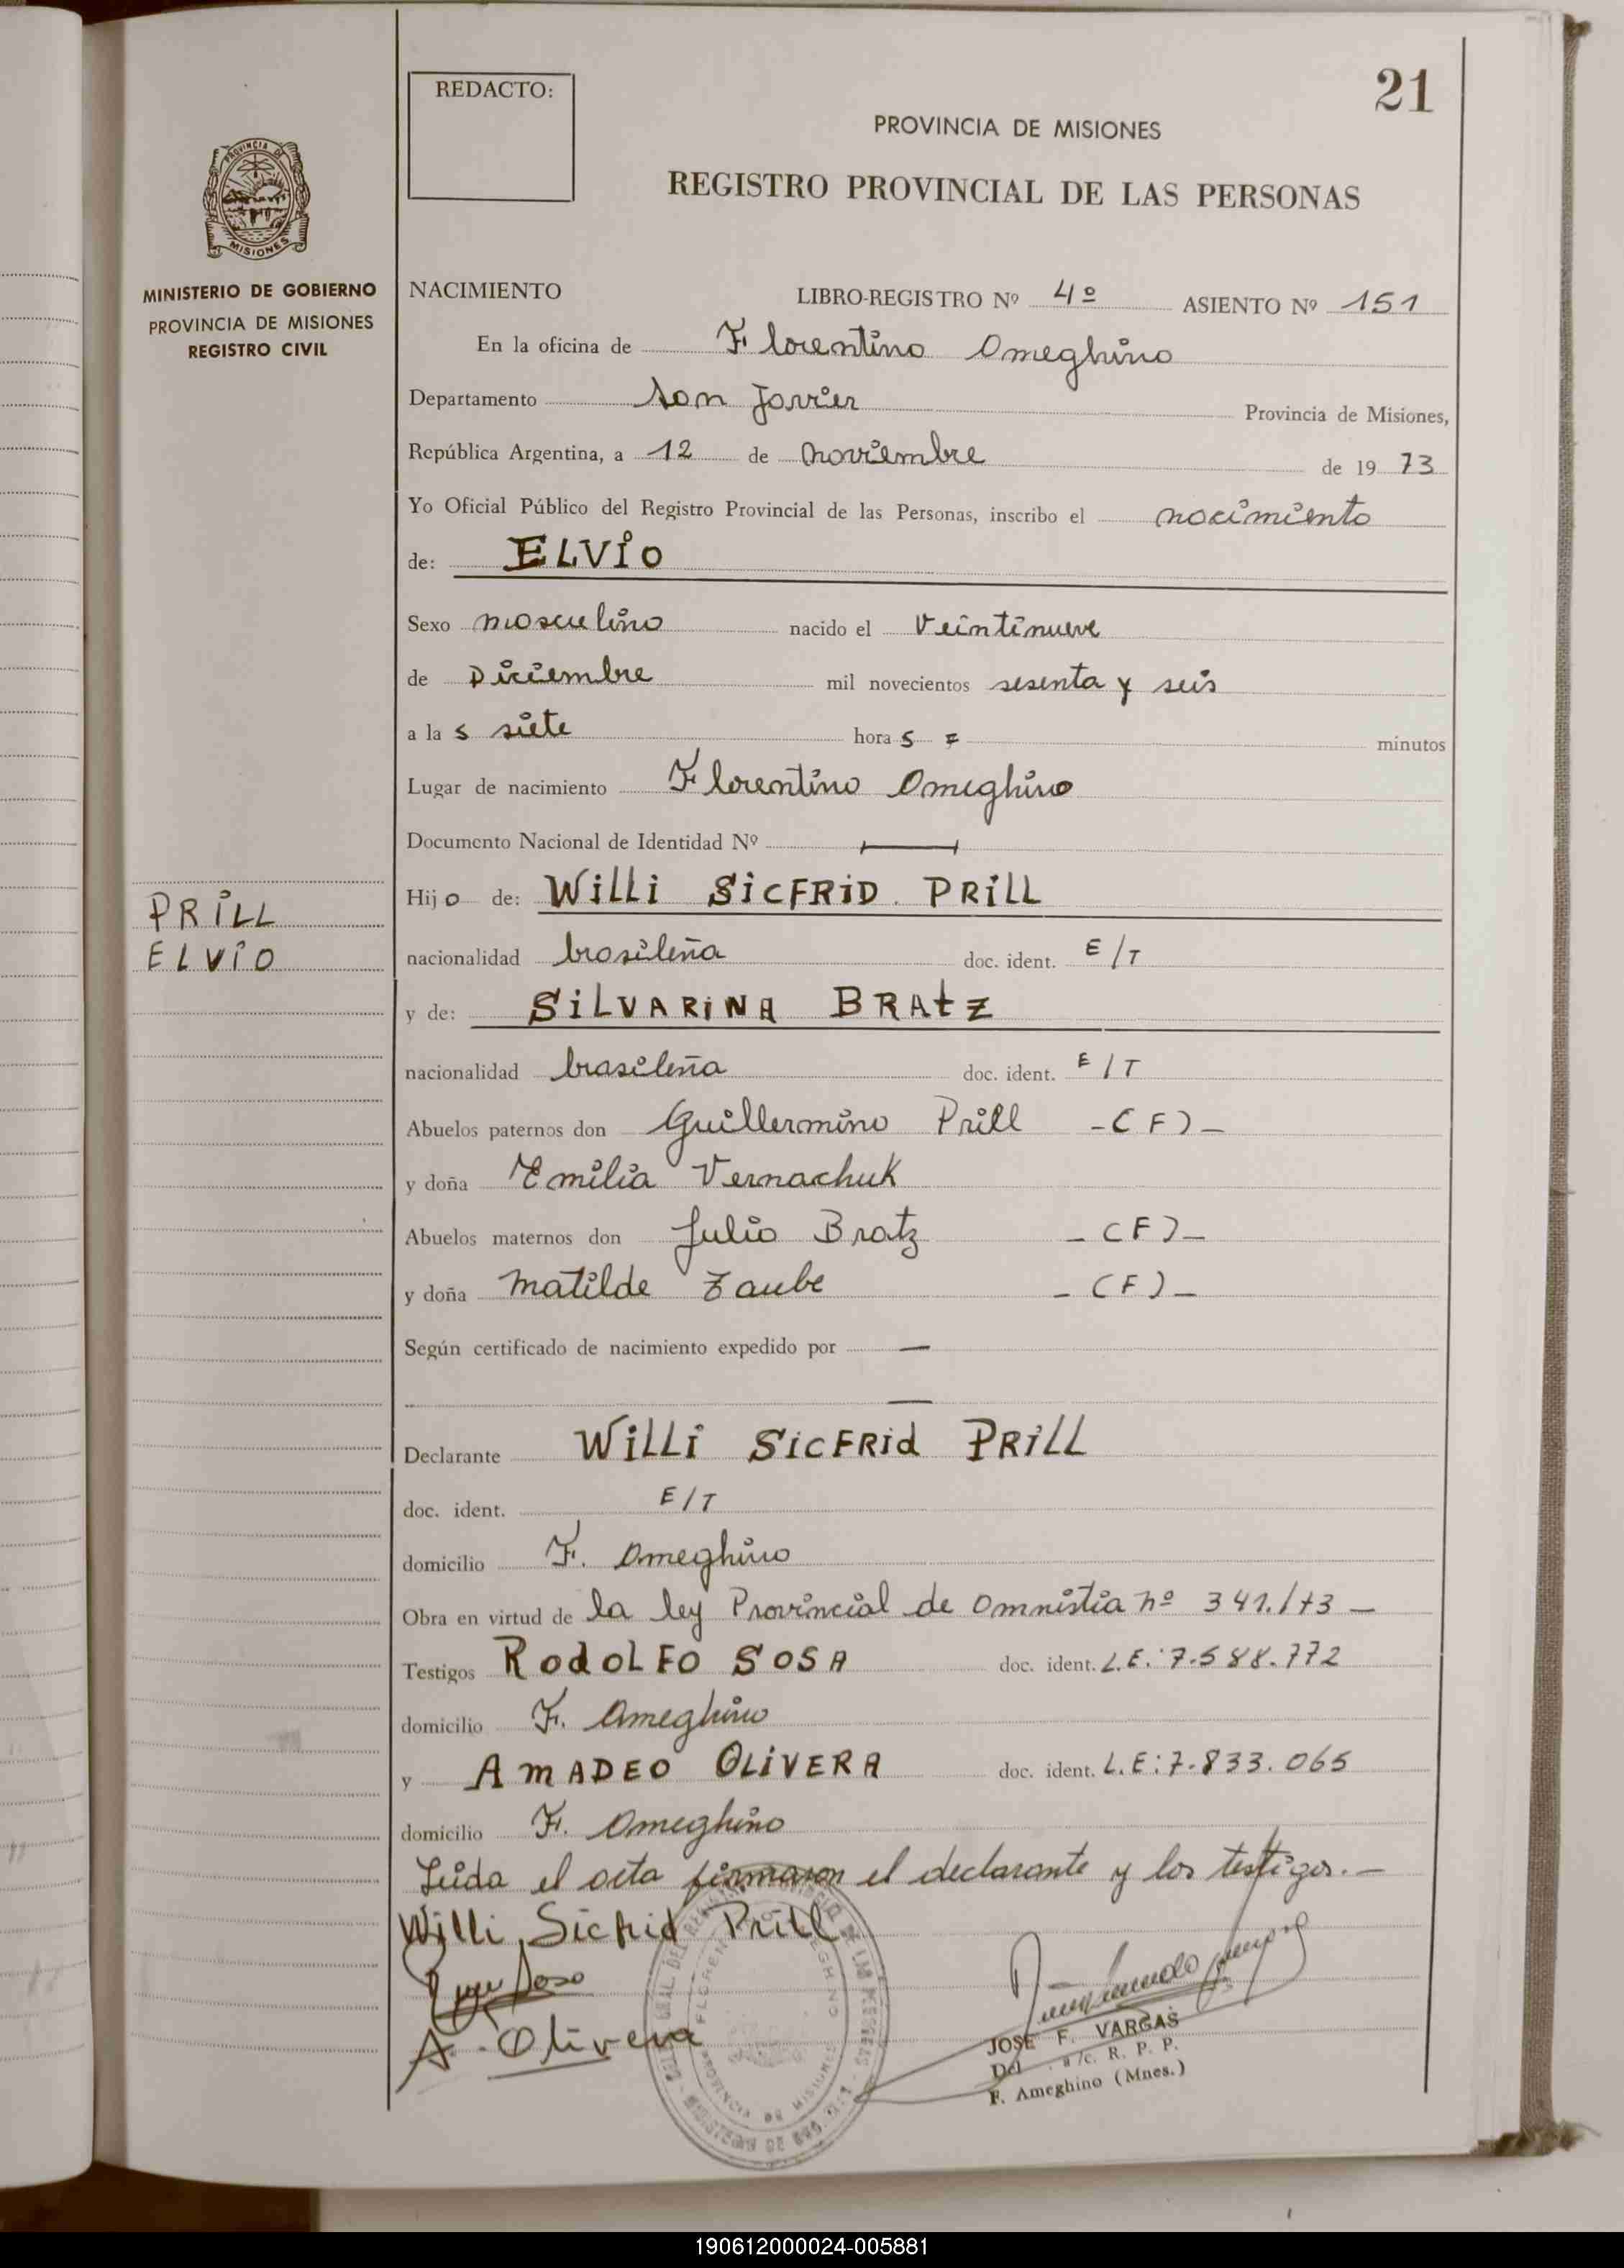 REDACTO:
21
PROVINCIA DE MISIONES
REGISTRO PROVINCIAL DE LAS PERSONAS
PROVINCIA DE
MISIONES
MINISTERIO DE GOBIERNO
PROVINCIA DE MISIONES
REGISTRO CIVIL
NACIMIENTO LIBRO-REGISTRO Nº 4º ASIENTO Nº 151
En la oficina de Florentino Ameghino
Departamento San Javier Provincia de Misiones,
República Argentina, a 12 de noviembre de 1973
Yo Oficial Público del Registro Provincial de las Personas, inscribo el nacimiento
de: ELVIO
Sexo masculino nacido el Veintinueve
de Diciembre mil novecientos sesenta y seis
a las siete horas = minutos
Lugar de nacimiento Florentino Ameghino
Documento Nacional de Identidad Nº —
PRILL
ELVIO
Hijo de: WILLI SICFRID PRILL
nacionalidad brasileña doc. ident. E/T
y de: SILVARINA BRATZ
nacionalidad brasileña doc. ident. E/T
Abuelos paternos don Guillermino Prill -(F)-
y doña Emilia Vernachuk
Abuelos maternos don Julio Bratz -(F)-
y doña Matilde Zaube -(F)-
Según certificado de nacimiento expedido por —
—
Declarante WILLI SICFRID PRILL
doc. ident. E/T
domicilio F. Ameghino
Obra en virtud de la ley Provincial de Amnistia nº 341./73 —
Testigos RODOLFO SOSA doc. ident. L.E.: 7.588.772
domicilio F. Ameghino
y AMADEO OLIVERA doc. ident. L.E: 7.833.065
domicilio F. Ameghino
Leida el acta firmaron el declarante y los testigos.—
Willi Sicfrid Prill
Sosa
A. Olivera
JOSE F. VARGAS
Del. a/c. R. P. P.
F. Ameghino (Mnes.)
190612000024-005881